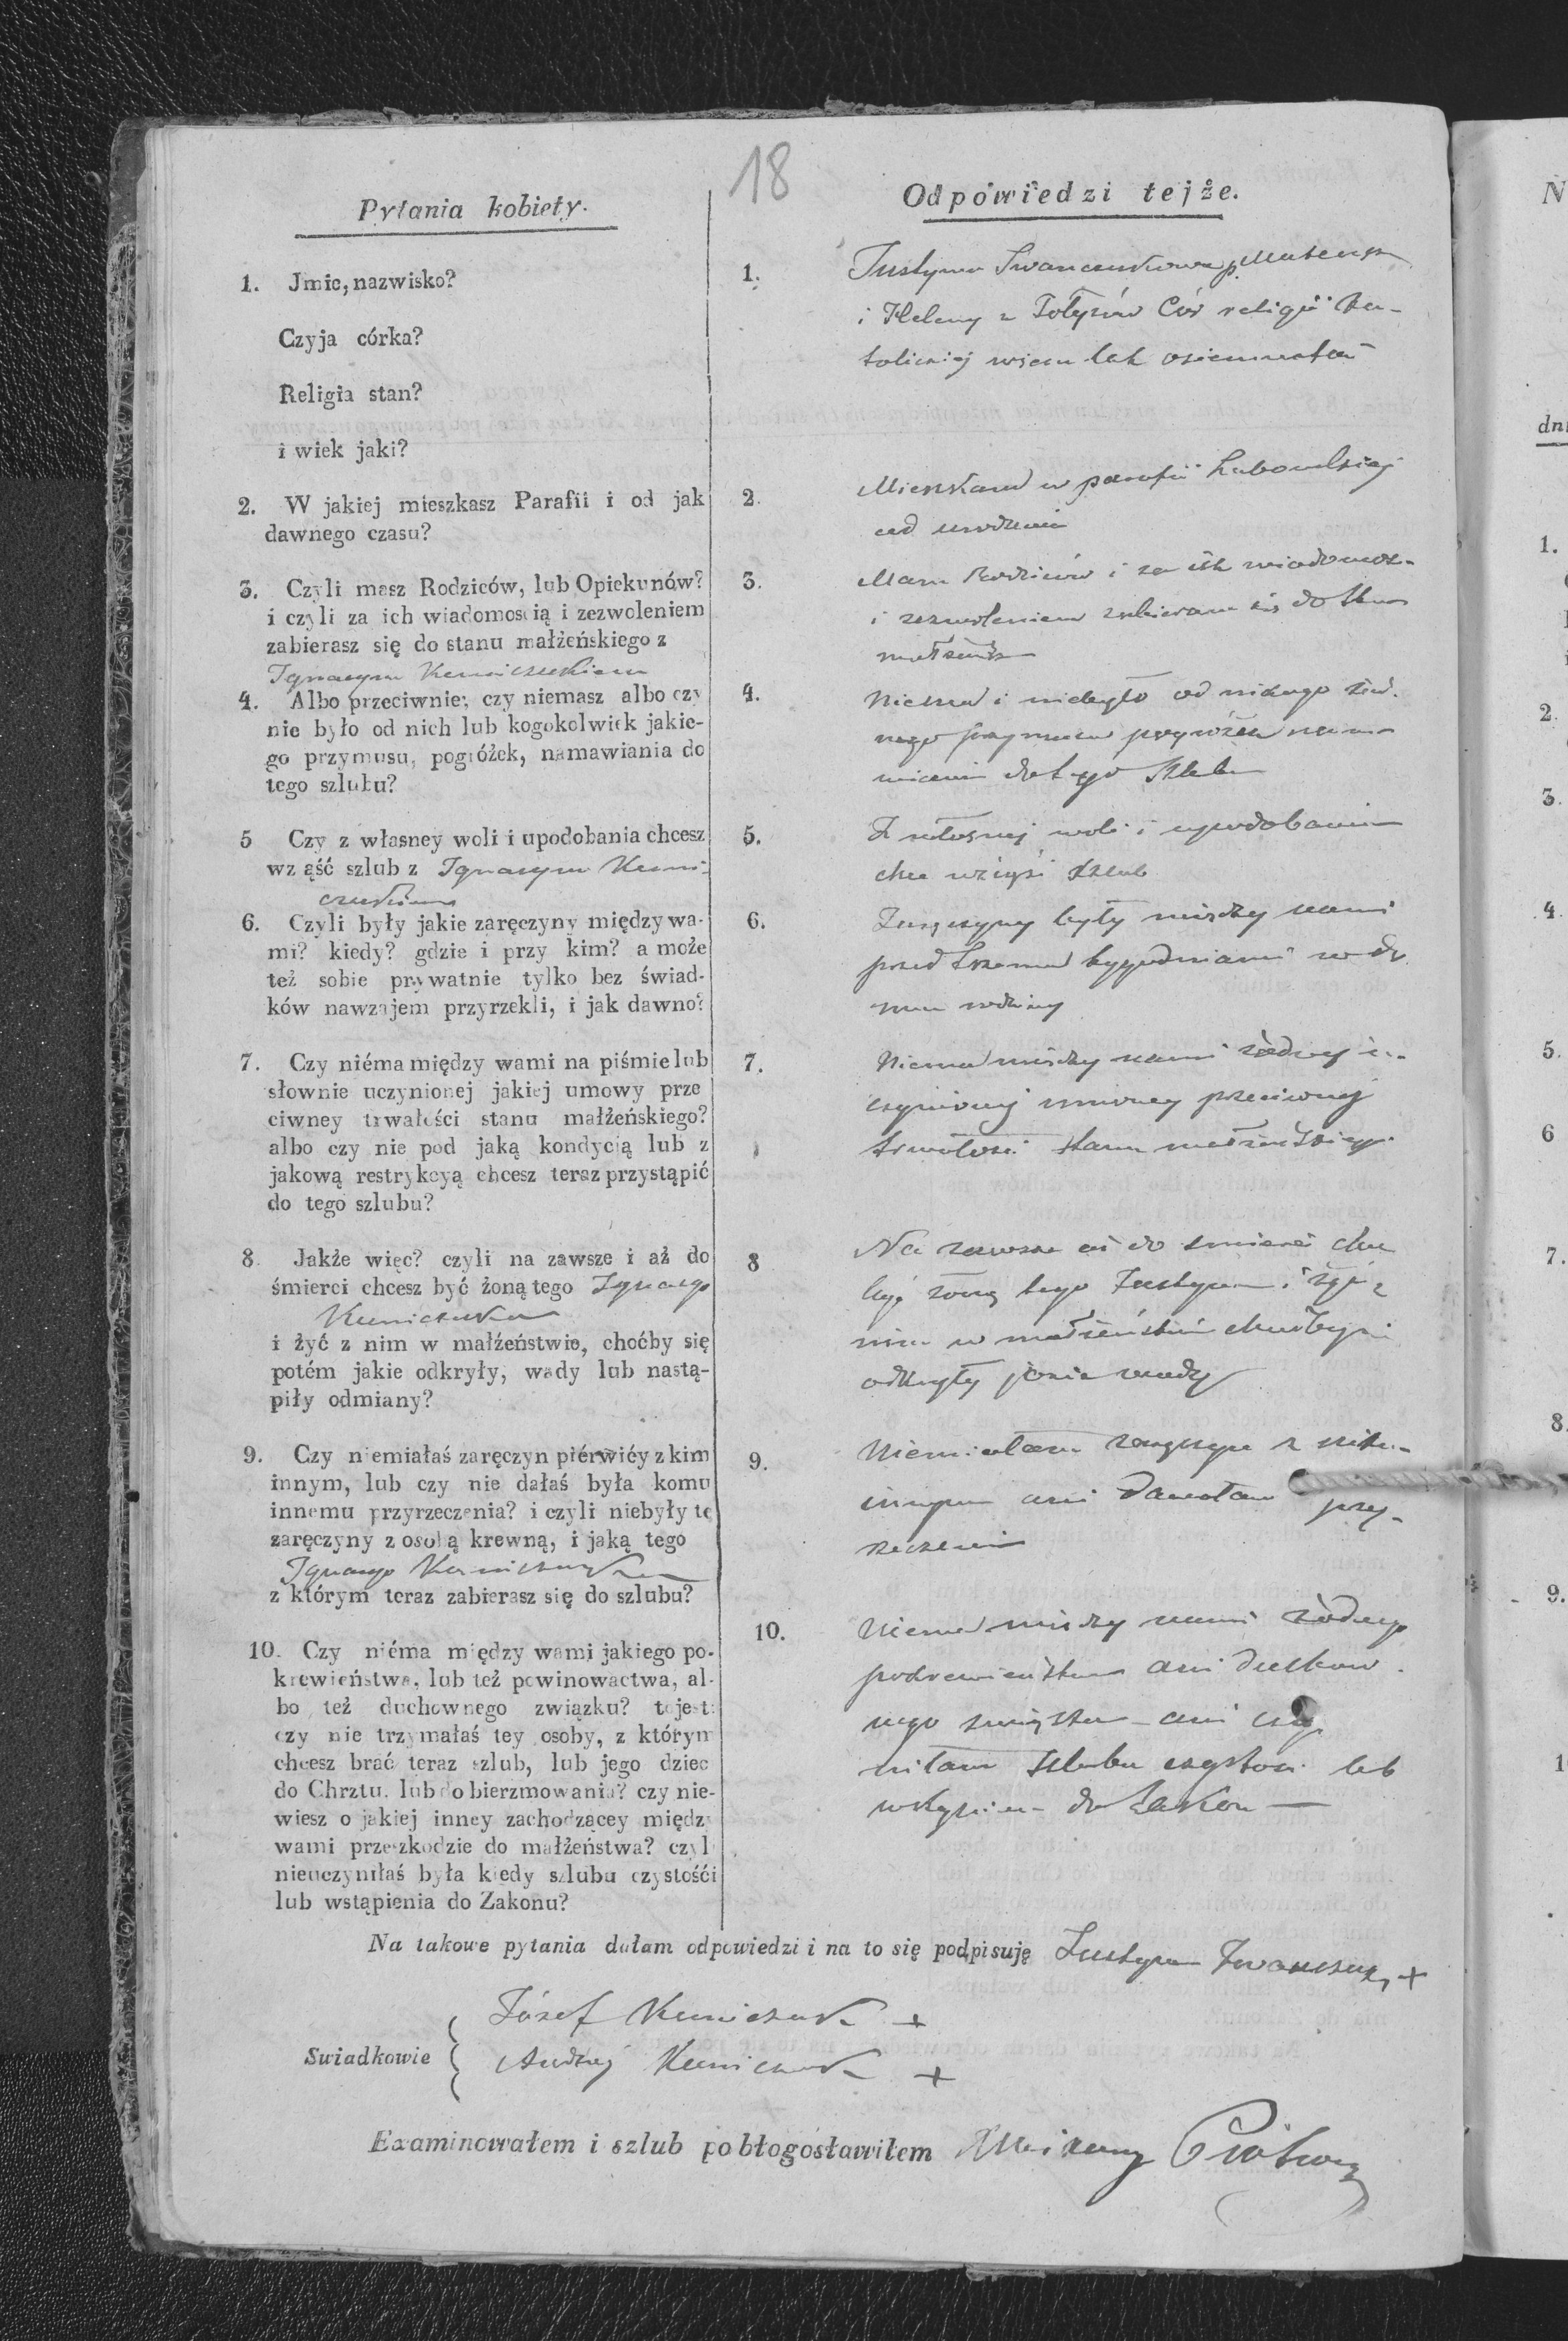 18
Pytania kobiety.
1. Jmie, nazwisko?
Czyja córka?
Religia stan?
i wiek jaki?
2. W jakiej mieszkasz Parafii i od jak
dawnego czasu?
3. Czyli masz Rodziców, lub Opiekunów?
i czyli za ich wiadomością i zezwoleniem
zabierasz się do stanu małżeńskiego z
Ignacym Kuniczukiem
4. Albo przeciwnie; czy niemasz albo czy
nie było od nich lub kogokolwiek jakie-
go przymusu, pogróżek, namawiania do
tego szlubu?
5 Czy z własney woli i upodobania chcesz
wziąść szlub z Ignacym Kuni-
czukiem
6. Czyli były jakie zaręczyny między wa-
mi? kiedy? gdzie i przy kim? a może
też sobie prywatnie tylko bez świad-
ków nawzajem przyrzekli, i jak dawno?
7. Czy niéma między wami na piśmie lub
słownie uczynionej jakiej umowy prze
ciwney trwałości stanu małżeńskiego?
albo czy nie pod jaką kondycią lub z
jakową restrykcyą chcesz teraz przystąpić
do tego szlubu?
8. Jakże więc? czyli na zawsze i aż do
śmierci chcesz być żoną tego Ignacego
Kuniczuka
i żyć z nim w małżeństwie, choćby się
potém jakie odkryły, wady lub nastą-
piły odmiany?
9. Czy niemiałaś zaręczyn piérwiéy z kim
innym, lub czy nie dałaś była komu
innemu przyrzeczenia? i czyli niebyły te
zaręczyny z osobą krewną, i jaką tego
Ignacego Kuniczuka
z którym teraz zabierasz się do szlubu?
10. Czy niéma między wami jakiego po-
krewieństwa, lub też powinowactwa, al-
bo też duchownego związku? to jest:
czy nie trzymałaś tey osoby, z którym
chcesz brać teraz szlub, lub jego dziec
do Chrztu, lub do bierzmowania? czy nie-
wiesz o jakiej inney zachodzącey między
wami przeszkodzie do małżeństwa? czyl
nieuczyniłaś była kiedy szlubu czystośći
lub wstąpienia do Zakonu?
Odpowiedzi tejże.
1. Justyna Iwanczukowa
i Heleny z Cór religii Ka-
tolickiej wieku lat
2. Mieszkam w parafii Lubomlskiej
od urodzenia
3. Mam Rodziców i za ich wiadomoś-
i zezwoleniem zabieram się do stanu
małżeńs
4. Niema i niebyło od nikogo żad-
nego przymusu pogróżek nama-
wiania do tego Szlubu
5. Z własnej woli i upodobania
chce wziąść szlub
6. Zaręczyny były między nami
przed trzema tygodniami w do
mu rodziny
7. Niema między nami żadnej u-
czynionej umowy przeciwnej
trwałości stanu małżeńskiego
8 Na zawsze aż do śmierci chce
być żoną tego i żyć z
nim w małżeństwie chociażby się
odkryły jakie wady
9. Niemiałam zaręczyn z nikim
innym ani dawałam przy-
rzeczenia
10. Niema między nami żadnego
pokrewieństwa ani duchow-
nego związku ani czy
niłam szlubu czystości lub
wstąpienia do Zakonu
Na takowe pytania dałam odpowiedzi i na to się podpisuję Justyna Iwanczuk +
Józef Kuniczuk +
Swiadkowie
Andrzej Kuniczuk +
Examinowałem i szlub pobłogosławiłem
N
dni
1.
2.
3.
4
5.
6
7.
8.
9.
1